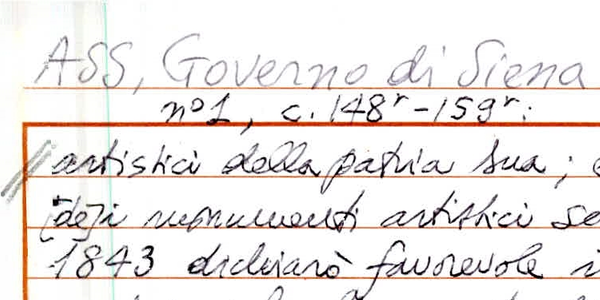 ASS, Governo di Siena
n° 1, c. 148r - 159r:
artistici della patria sua; e
[de]i monumenti artistici se
1843 dichiarò favorevole i